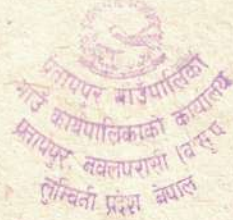 प्रतापपुर गाउँपालिका
गाउँ कार्यपालिकाको कार्यालय
प्रतापपुर नवलपरासी (ब.सु.प
लुम्बिनी प्रदेश नेपाल